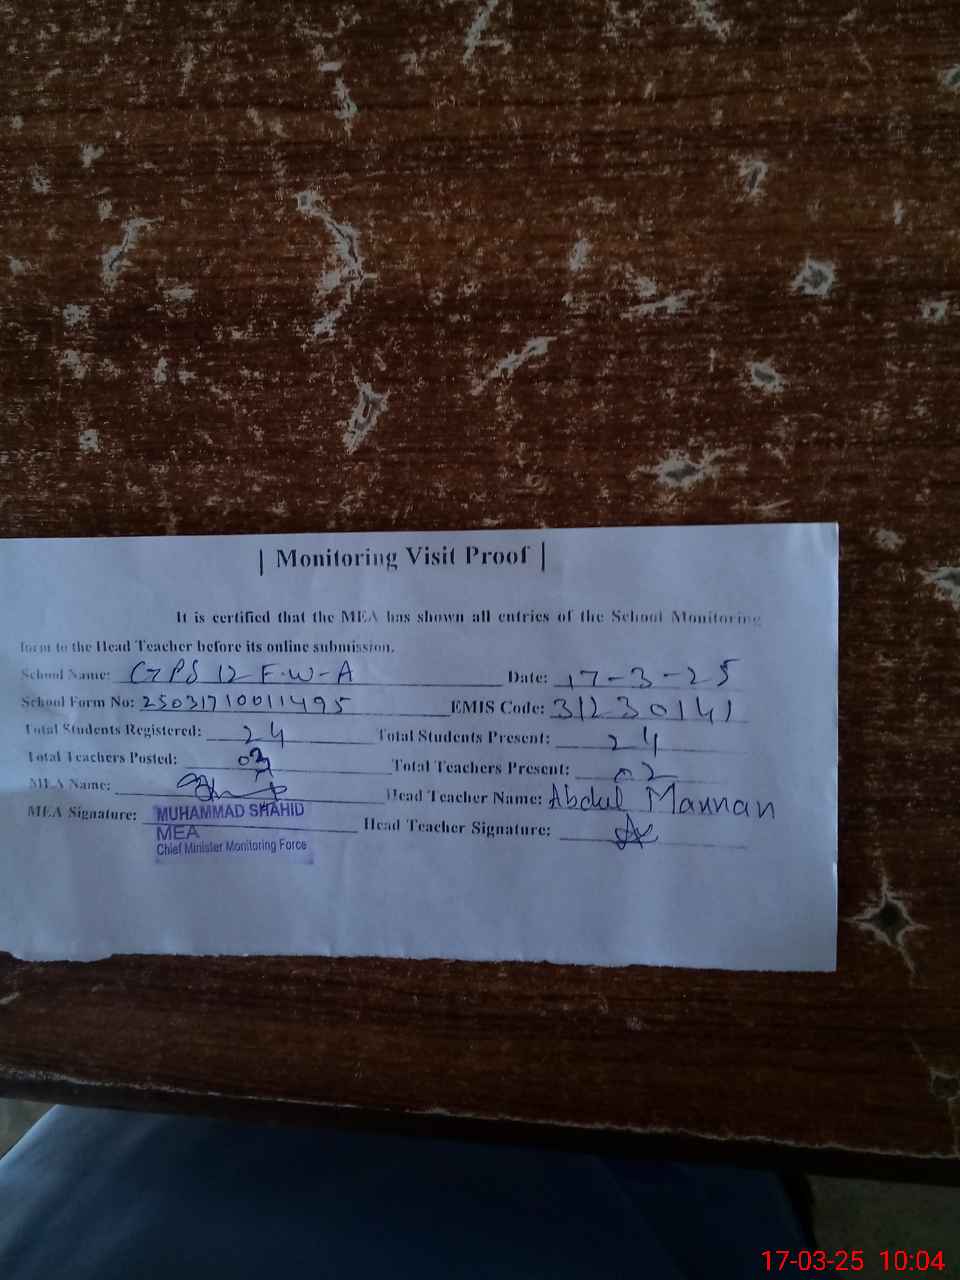 | Monitoring Visit Proof |
It is certified that the MEA has shown all entries of the School Monitoring
form to the Head Teacher before its online submission.
School Name: GPS 12 F.W-A Date: 17-3-25
School Form No: 25031710011495 EMIS Code: 31230141
Total Students Registered: 24 Total Students Present: 24
Total Teachers Posted: 02 Total Teachers Present: 02
MEA Name: Head Teacher Name: Abdul Mannan
MEA Signature: Head Teacher Signature:
MUHAMMAD SHAHID
MEA
Chief Minister Monitoring Force
17-03-25 10:04